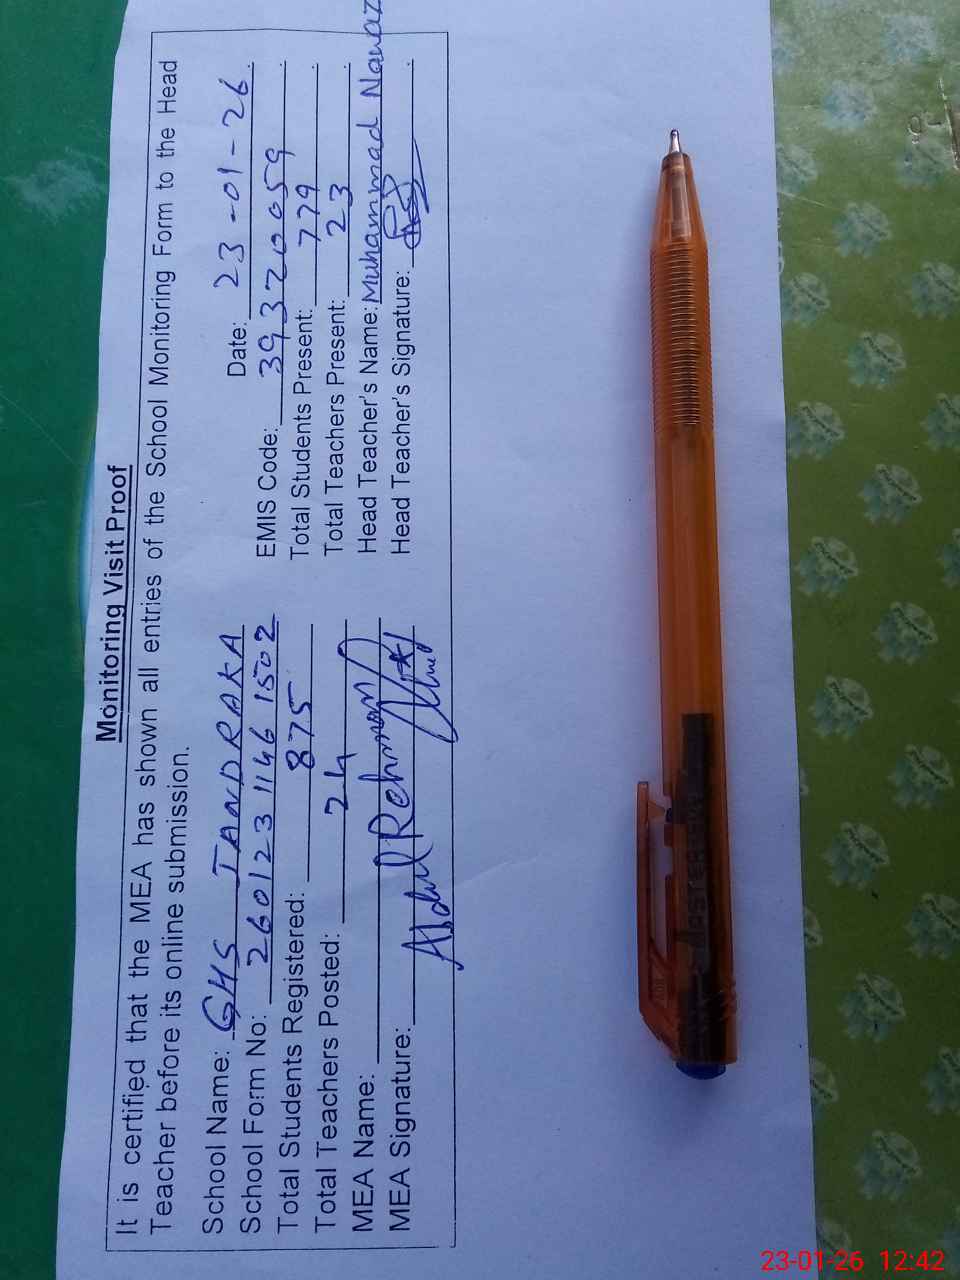 Monitoring Visit Proof
It is certified that the MEA has shown all entries of the School Monitoring Form to the Head
Teacher before its online submission.
School Name: GHS JANDRAKA Date: 23-01-26
School Form No: 2601231146 1502 EMIS Code: 39320059
Total Students Registered: 875 Total Students Present: 779
Total Teachers Posted: 24 Total Teachers Present: 23
MEA Name: Abdul Rehman Head Teacher's Name: Muhammad Nawaz
MEA Signature: Head Teacher's Signature:
23-01-26 12:42